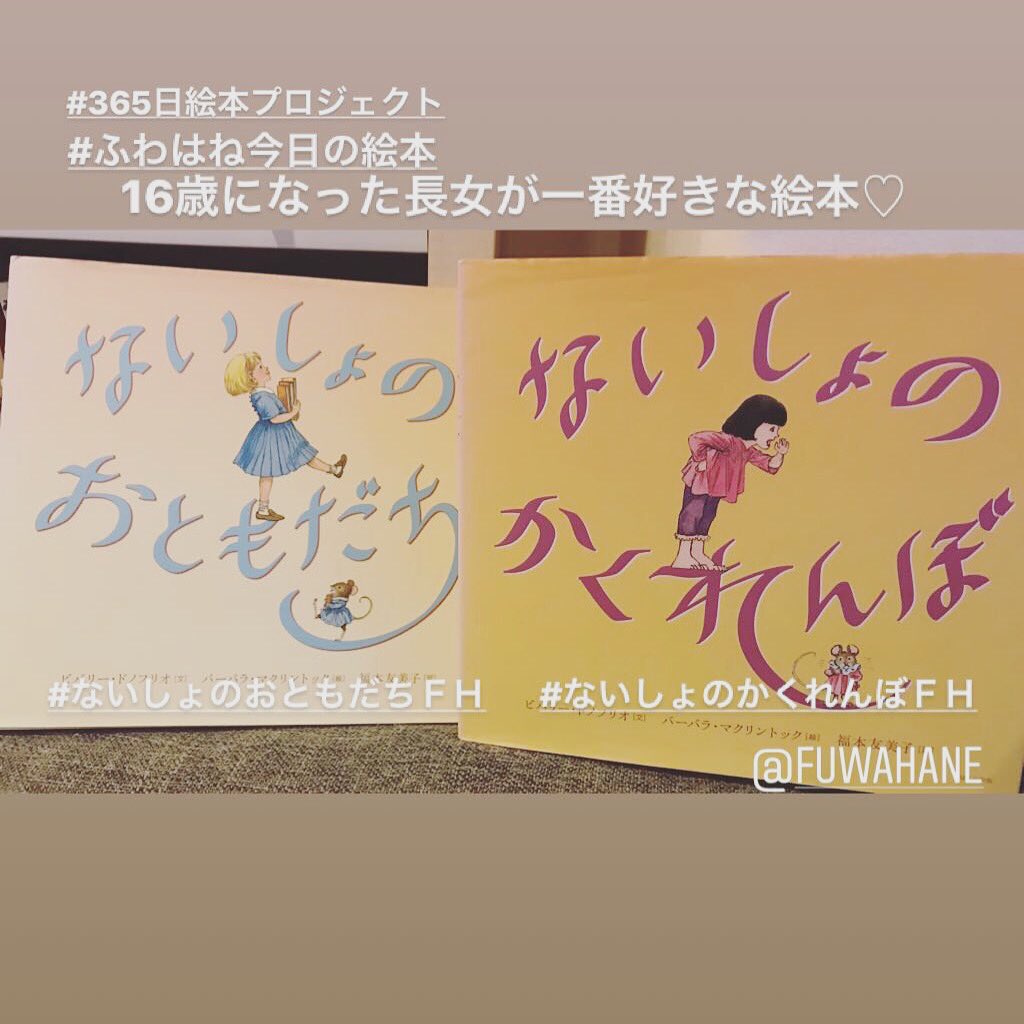 #365日絵本プロジェクト
#ふわはね今日の絵本
16歳になった長女が一番好きな絵本♡
ないしょの
おともだち
バーバラ・マクリントック[絵] 福本友美子[訳]
#ないしょのおともだちＦＨ
ないしょの
かくれんぼ
#ないしょのかくれんぼＦＨ
バーバラ・マクリントック[絵] 福本友美子
@FUWAHANE